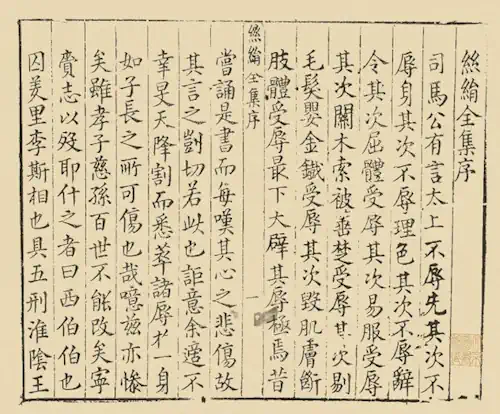 絲絹全集序
司馬公有言太上不辱先其次不
辱身其次不辱理色其次不辱辭
令其次屈體受辱其次易服受辱
其次關木索被箠楚受辱其次剔
毛髮嬰金鐵受辱其次毀肌膚斷
肢體受辱最下大辟其辱極焉昔
絲絹全集序
一
嘗誦是書而每嘆其心之悲傷故
其言之剴切若此也詎意余適不
幸旻天降割而悉萃諸辱於一身
如子長之所可傷也哉噫茲亦慘
矣雖孝子慈孫百世不能改矣寧
賫志以歿耶什之者曰西伯伯也
囚羑里李斯相也具五刑淮陰王